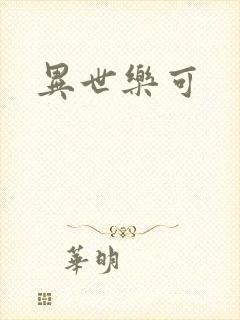 異世樂可
華明